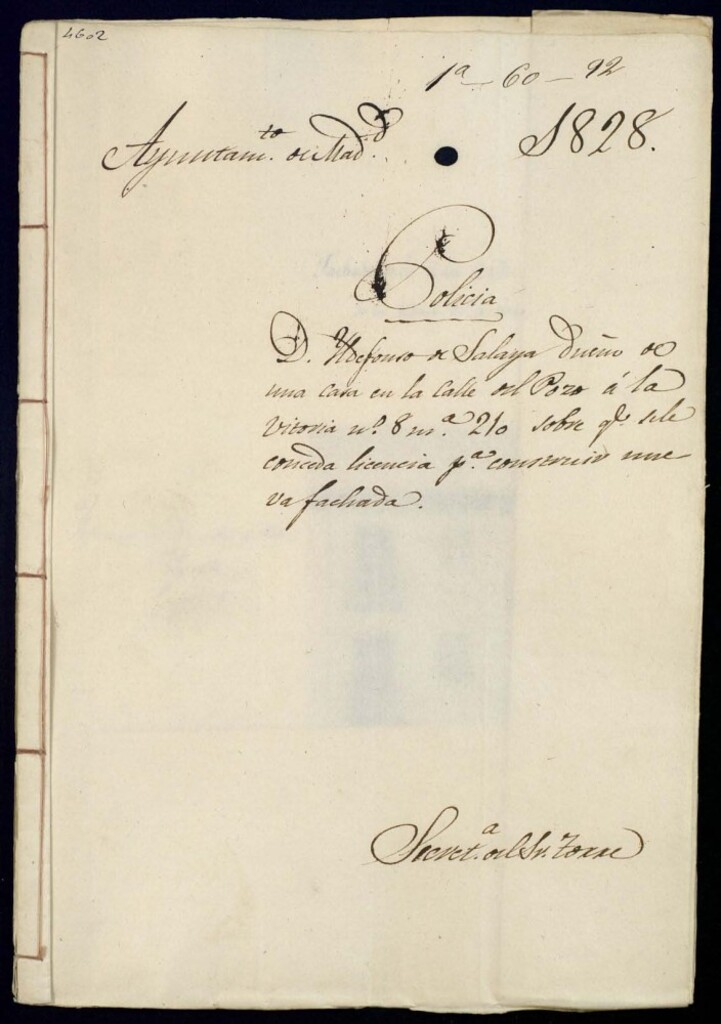 4602
1ª - 60 - 92
Ayuntam.to de Mad.d
1828.
Policia
D. Ildefonso de Salaya dueño de
una casa en la Calle del Pozo á la
Vitoria nº. 8 m.ª 210 sobre q.e sele
conceda licencia p.ª construir nue
va fachada.
Secret.a del Sr. Torre